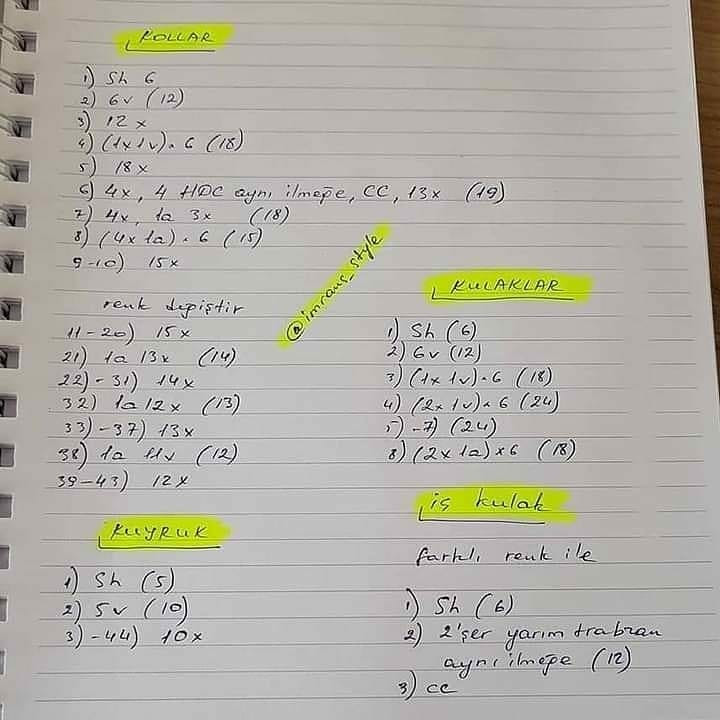 KOLLAR
1) Sh 6
2) 6v (12)
3) 12 x
4) (1x1v) . 6 (18)
5) 18x
6) 4x, 4 HDC aynı ilmeğe, CC, 13x (19)
7) 4x, 1a 3x (18)
8) (4x 1a) . 6 (15)
9-10) 15x
renk değiştir
11-20) 15x
21) 1a 13x (14)
22) - 31) 14x
32) 1a 12x (13)
33) - 37) 13x
38) 1a 11v (12)
39-43) 12x
@imrans_style
KUYRUK
1) Sh (5)
2) 5v (10)
3) - 44) 10x
KULAKLAR
1) Sh (6)
2) 6v (12)
3) (1x 1v) . 6 (18)
4) (2x 1v) x 6 (24)
5) - 7) (24)
8) (2x 1a) x 6 (18)
iç kulak
farklı renk ile
1) Sh (6)
2) 2'şer yarım trabzan
aynı ilmeğe (12)
3) CC